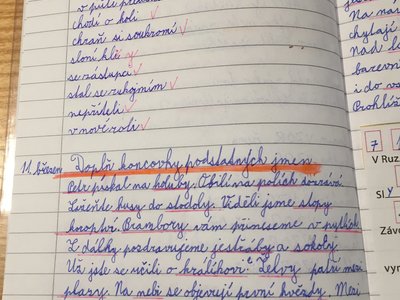 v půli prázdnin
chodí o holi
chraň si soukromí
sloní kly
se zástupci
stal se rukojmím
nepříteli
v nové roli
11. březen Doplň koncovky podstatných jmen
Petr pískal na holuby. Obilí na polích dozrává.
Zažeňte husy do stodoly. Viděli jsme stopy
koroptví. Brambory vám přineseme v pytlích.
Z dálky pozdravujeme jestřáby a sokoly.
Už jste se učili o králíkovi. Želvy patří mezi
plazy. Na nebi se objevují první hvězdy. Mezi
Na
chytají
Nad
barevn
i do vo
Prohlíž
7
V Ruz
Sl y
Závo
vym